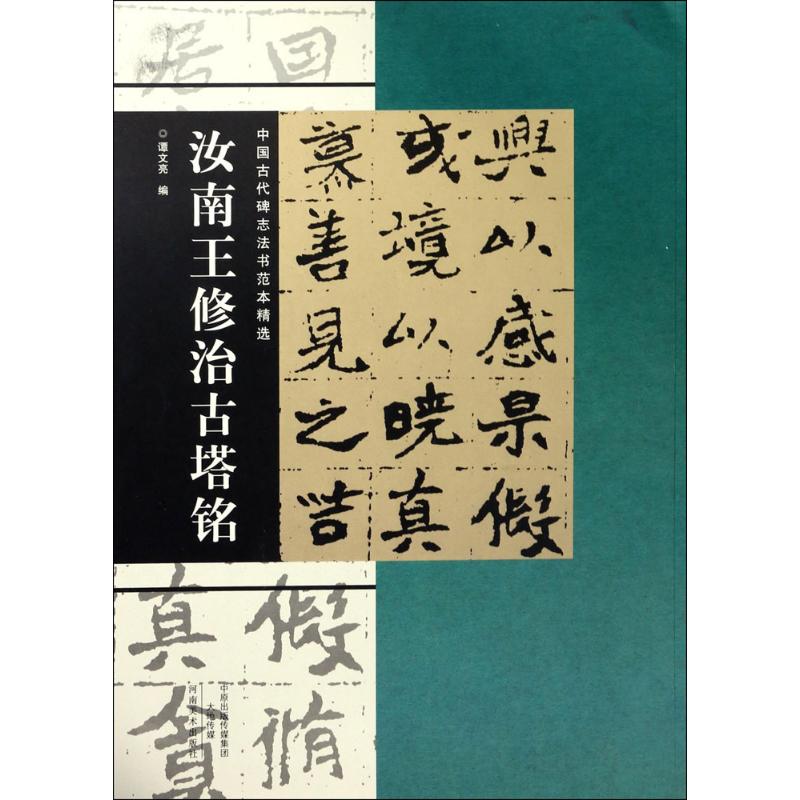 中国古代碑志法书范本精选
汝南王修治古塔铭
◎谭文亮 编
興以感果假
或境以曉真
慕善見之
假脩
真
中原出版传媒集团
大地传媒
河南美术出版社